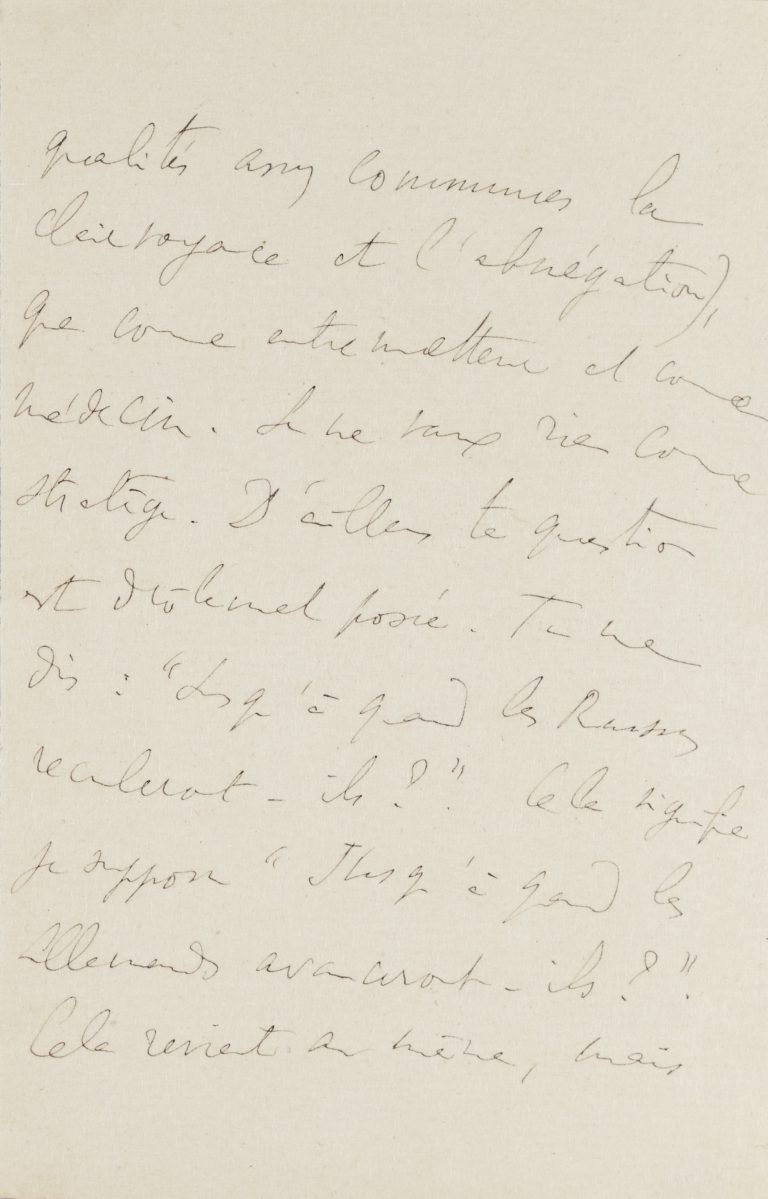 qualités assez communes la
clairvoyance et l'abnégation),
que comme entremetteur et comme
médecin. Je ne vaux rien comme
stratège. D'ailleurs ta question
est drôlement posée. Tu me
dis : "Jusqu'à quand les Russes
reculeront-ils ?". Cela signifie
je suppose "Jusqu'à quand les
Allemands avanceront-ils ?".
Cela revient au même, mais